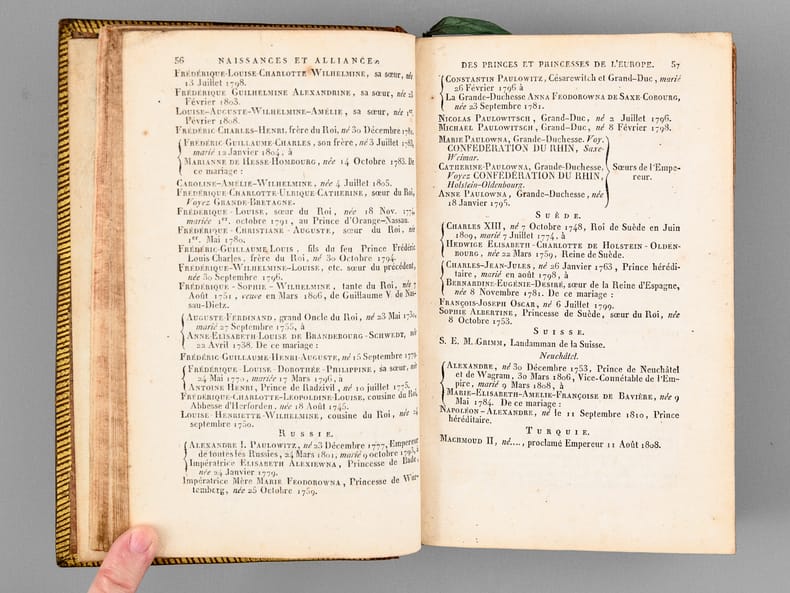 56 NAISSANCES ET ALLIANCES
FRÉDÉRIQUE-LOUISE-CHARLOTTE WILHELMINE, sa sœur, née
13 Juillet 1798.
FRÉDÉRIQUE GUILHELMINE ALEXANDRINE, sa sœur, née 23
Février 1803.
LOUISE-AUGUSTE-WILHELMINE-AMÉLIE, sa sœur, née 1er.
Février 1808.
FRÉDÉRIC CHARLES-HENRI, frère du Roi, né 30 Décembre 1781.
FRÉDÉRIC GUILLAUME-CHARLES, son frère, né 3 Juillet 1783,
marié 12 Janvier 1804, à
MARIANNE DE HESSE-HOMBOURG, née 14 Octobre 1783. De
ce mariage :
CAROLINE-AMÉLIE-WILHELMINE, née 4 Juillet 1805.
FRÉDÉRIQUE-CHARLOTTE-ULRIQUE-CATHERINE, sœur du Roi,
Voyez GRANDE-BRETAGNE.
FRÉDERIQUE-LOUISE, sœur du Roi, née 18 Nov. 1774,
mariée 1er. octobre 1791, au Prince d'Orange-Nassau.
FRÉDÉRIQUE-CHRISTIANE-AUGUSTE, sœur du Roi, né
1er. Mai 1780.
FRÉDÉRIC-GUILLAUME LOUIS, fils du feu Prince Frédéric
Louis Charles, frère du Roi, né 30 Octobre 1794.
FRÉDÉRIQUE-WILHELMINE-LOUISE, etc. sœur du précédent,
née 30 Septembre 1796.
FRÉDÉRIQUE-SOPHIE-WILHELMINE, tante du Roi, née 7
Août 1751, veuve en Mars 1806, de Guillaume V de Nas-
sau-Dietz.
AUGUSTE-FERDINAND, grand Oncle du Roi, né 23 Mai 1730,
marié 27 Septembre 1755, à
ANNE-ELISABETH-LOUISE DE BRANDEBOURG-SCHWEDT, née
22 Avril 1738. De ce mariage :
FRÉDÉRIC GUILLAUME-HENRI-AUGUSTE, né 15 Septembre 1779.
FRÉDÉRIQUE-LOUISE-DOROTHÉE-PHILIPPINE, sa sœur, née
24 Mai 1770, mariée 17 Mars 1796, à
ANTOINE HENRI, Prince de Radzivil, né 10 juillet 1775.
FRÉDÉRIQUE-CHARLOTTE-LEOPOLDINE-LOUISE, cousine du Roi,
Abbesse d'Herforden, née 18 Août 1745.
LOUISE-HENRIETTE-WILHELMINE, cousine du Roi, née 24
septembre 1750.
RUSSIE.
ALEXANDRE I. PAULOWITZ, né 23 Décembre 1777, Empereur
de toutes les Russies, 24 Mars 1801, marié 9 octobre 1793, à
Impératrice ELISABETH ALEXIEWNA, Princesse de Bade,
née 24 Janvier 1779.
Impératrice Mère MARIE FEODOROWNA, Princesse de Wur-
temberg, née 25 Octobre 1759.
DES PRINCES ET PRINCESSES DE L'EUROPE. 57
CONSTANTIN PAULOWITZ, Césarewitch et Grand-Duc, marié
26 Février 1796 à
La Grande-Duchesse ANNA FEODOROWNA DE SAXE-COBOURG,
née 23 Septembre 1781.
NICOLAS PAULOWITSCH, Grand-Duc, né 2 Juillet 1796.
MICHAEL PAULOWITSCH, Grand-Duc, né 8 Février 1798.
MARIE PAULOWNA, Grande-Duchesse. Voy.
CONFÉDÉRATION DU RHIN, Saxe-
Weimar.
CATHERINE-PAULOWNA, Grande-Duchesse,
Voyez CONFÉDÉRATION DU RHIN,
Holstein-Oldenbourg.
ANNE PAULOWNA, Grande-Duchesse, née
18 Janvier 1795.
Sœurs de l'Empe-
reur.
SUÈDE.
CHARLES XIII, né 7 Octobre 1748, Roi de Suède en Juin
1809, marié 7 Juillet 1774, à
HEDWIGE ELISABETH-CHARLOTTE DE HOLSTEIN-OLDEN-
BOURG, née 22 Mars 1759, Reine de Suède.
CHARLES-JEAN-JULES, né 26 Janvier 1763, Prince hérédi-
taire, marié en août 1798, à
BERNARDINE-EUGÉNIE-DESIRÉ, sœur de la Reine d'Espagne,
née 8 Novembre 1781. De ce mariage :
FRANÇOIS-JOSEPH OSCAR, né 6 Juillet 1799.
SOPHIE ALBERTINE, Princesse de Suède, sœur du Roi, née
8 Octobre 1753.
SUISSE.
S. E. M. GRIMM, Landamman de la Suisse.
Neuchâtel.
ALEXANDRE, né 30 Décembre 1753, Prince de Neuchâtel
et de Wagram, 30 Mars 1806, Vice-Connétable de l'Em-
pire, marié 9 Mars 1808, à
MARIE-ELISABETH-AMELIE-FRANÇOISE DE BAVIÈRE, née 9
Mai 1784. De ce mariage :
NAPOLÉON-ALEXANDRE, né le 11 Septembre 1810, Prince
héréditaire.
TURQUIE.
MACHMOUD II, né...., proclamé Empereur 11 Août 1808.